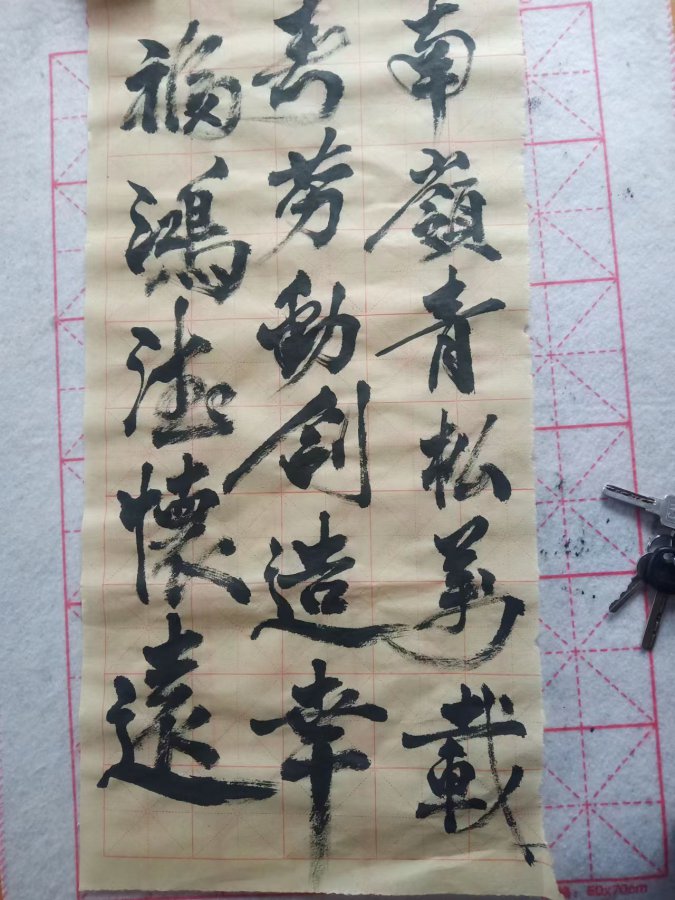 南嶺青松萬載
寿勞動創造幸
福鴻懷遠
50x70cm